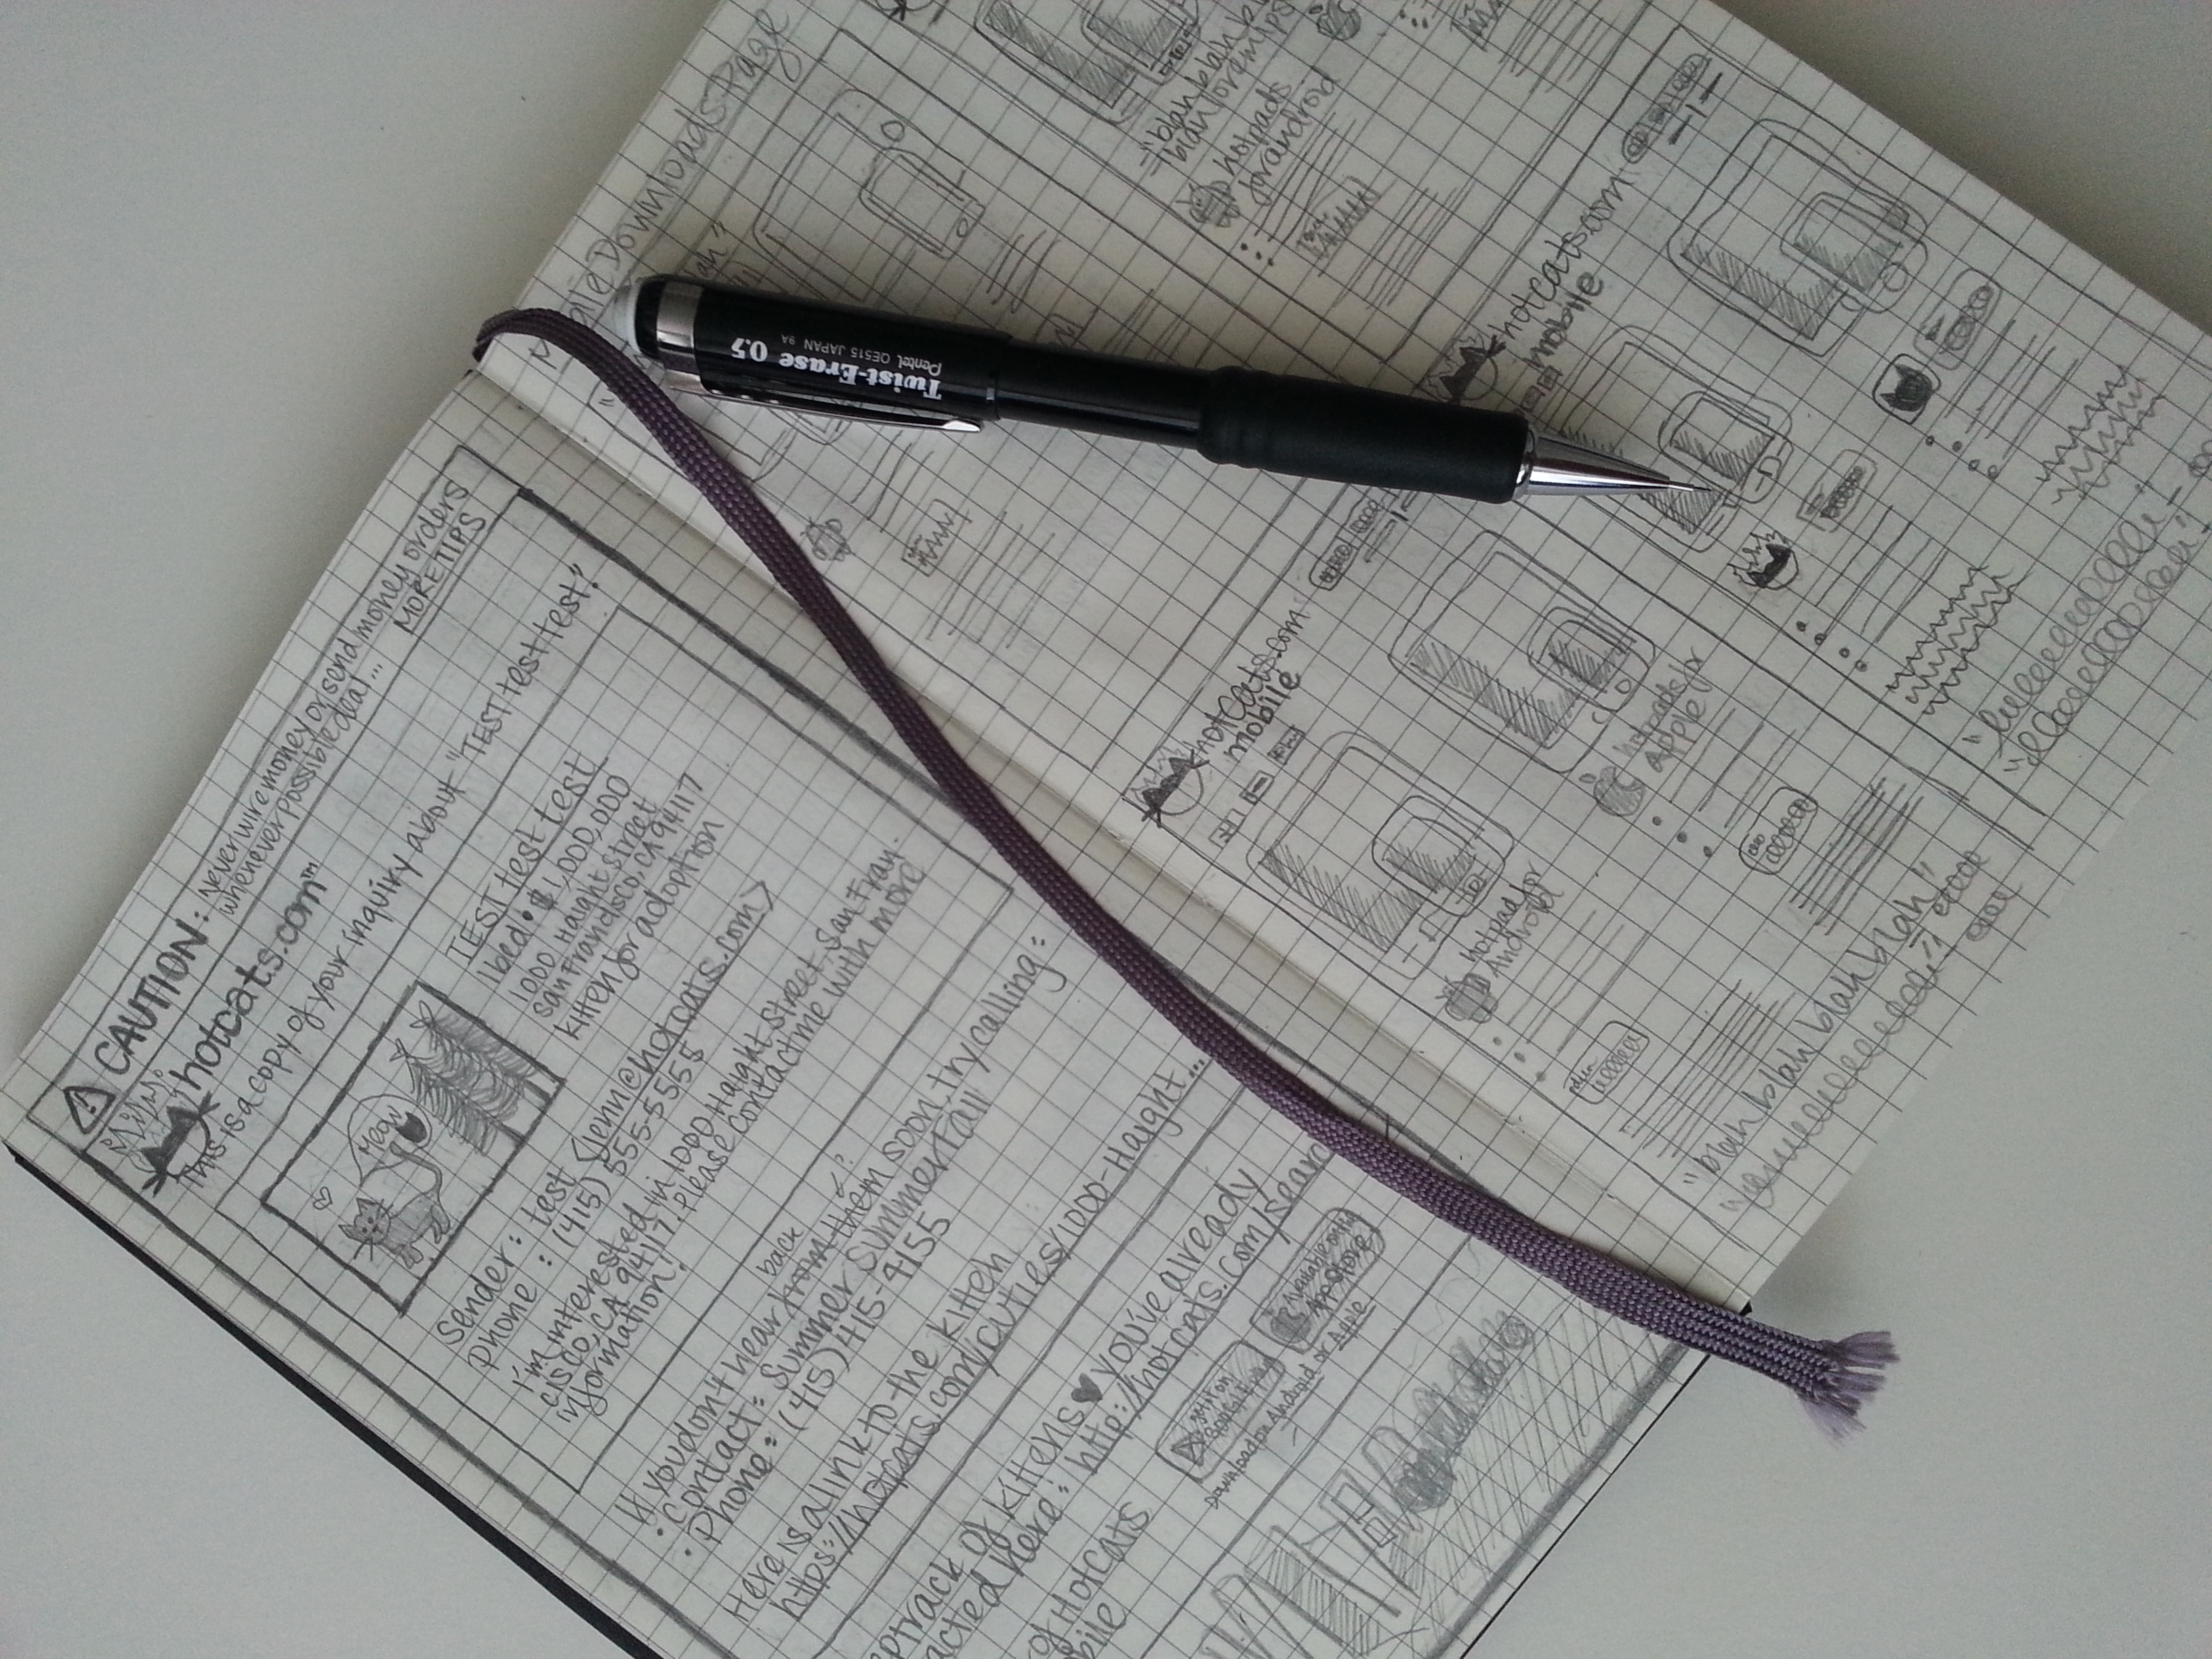 CAUTION: Never wire money or send money orders
whenever possible deal...
MORE TIPS
hotcats.com™
This is a copy of your inquiry about "TEST test test."
Meow
TEST test test
1 bed • $1,000,000
1000 Haight Street
San Francisco, CA 94117
kitten for adoption
Sender: test <jenn@hotcats.com>
Phone: (415) 555-5555
I'm interested in 1000 Haight Street, San Fran-
cisco, CA 94117. Please contact me with more
information!
If you don't hear from back them soon, try calling:
• Contact: Summer Summertail
• Phone: (415) 415-4155
Here is a link to the kitteh
https://hotcats.com/cuties/1000-Haight...
track of kittens ♥ you've already
here: http://hotcats.com/searc
of Hotcats
get it on
google play
Available on the
App Store
Download on Android or Apple
Downloads Page
Twist-Erase 0.5
Pentel QE515 JAPAN 9A
"blah blah b
blah lorem ips
hotpads
for android
hotcats.com
mobile
hotpad for
Android
hotpads for
Apple
"blah blah blah blah"
hotcats.com
mobile